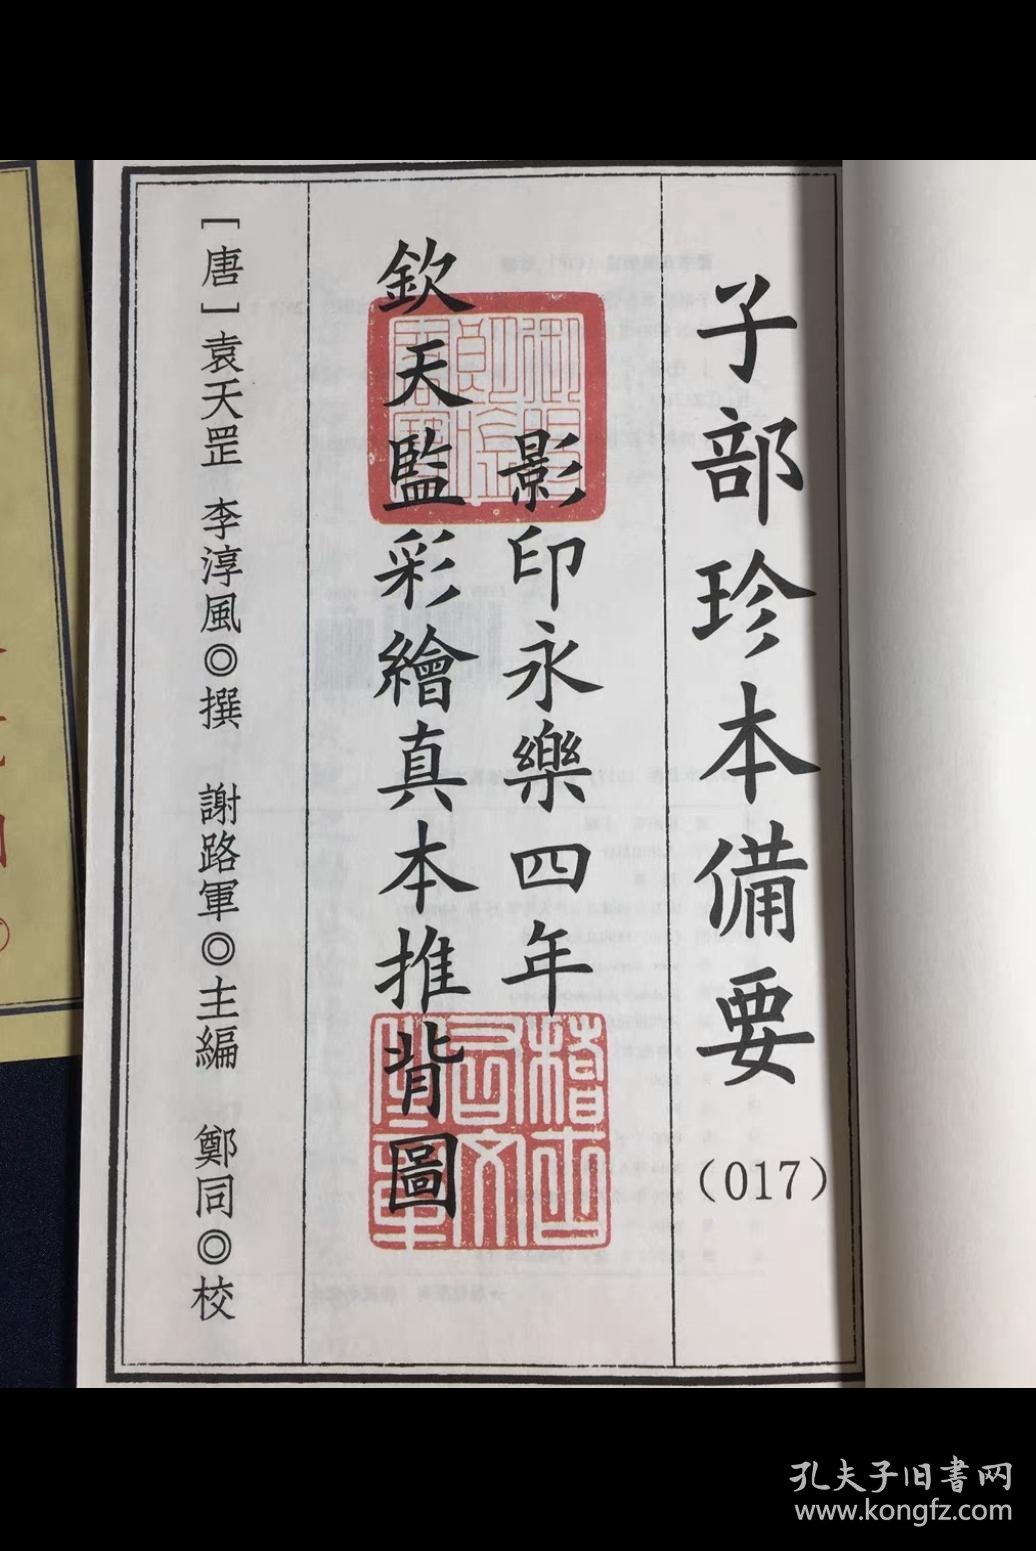 子部珍本備要
（017）
影印永樂四年
欽天監彩繪真本推背圖
［唐］袁天罡 李淳風◎撰 謝路軍◎主編 鄭同◎校
孔夫子旧書网
www.kongfz.com